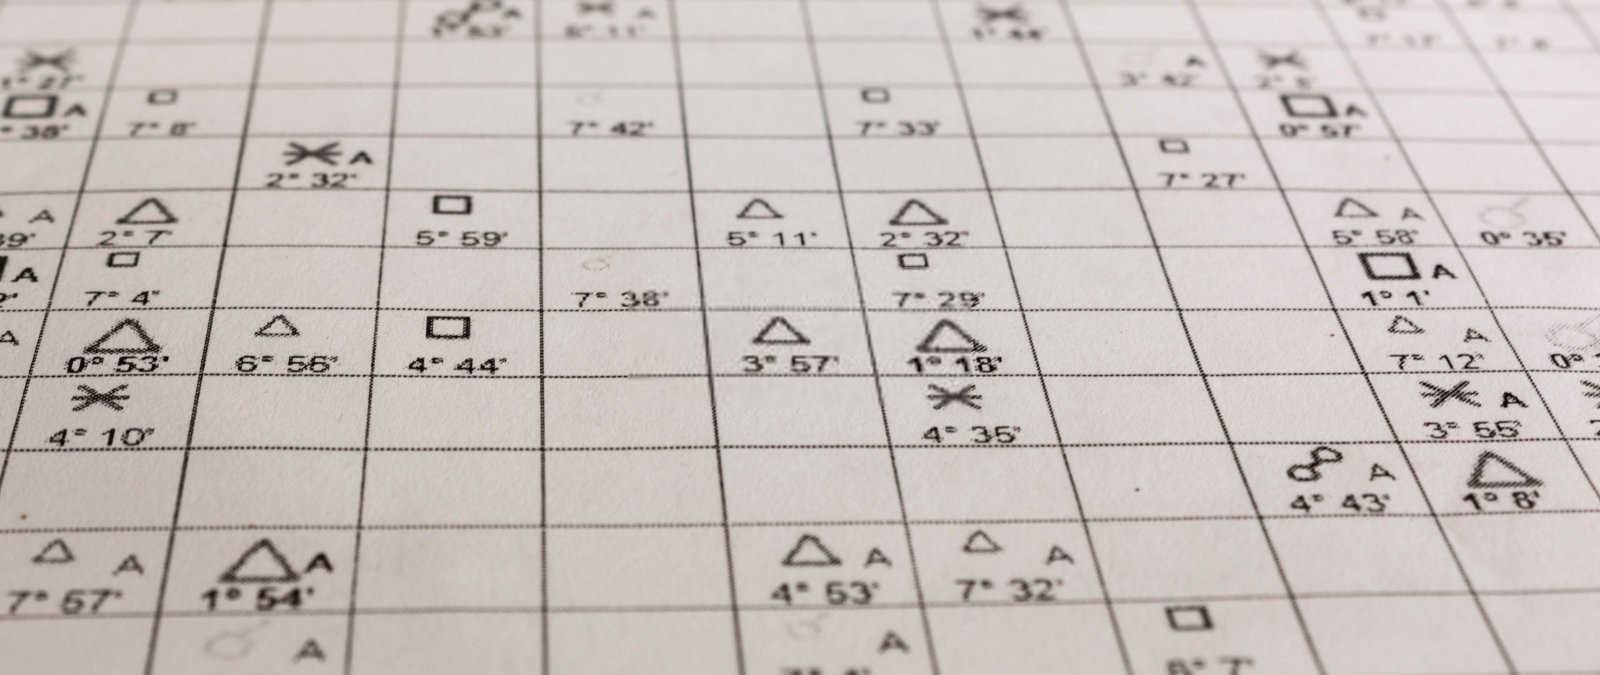 1° 44'
1° 27'
A
A
38' 7° 8' 7° 42' 7° 33' 0° 57'
A
2° 32' 7° 27'
A A
39' 2° 7' 5° 59' 5° 11' 2° 32' 5° 58' 0° 35'
A A
7° 4' 7° 38' 7° 29' 1° 1'
A A
0° 53' 6° 56' 4° 44' 3° 57' 1° 18' 7° 12'
A
4° 10' 4° 35' 3° 55'
A
4° 43' 1° 8'
A A A A
7° 57' 1° 54' 4° 53' 7° 32'
A A